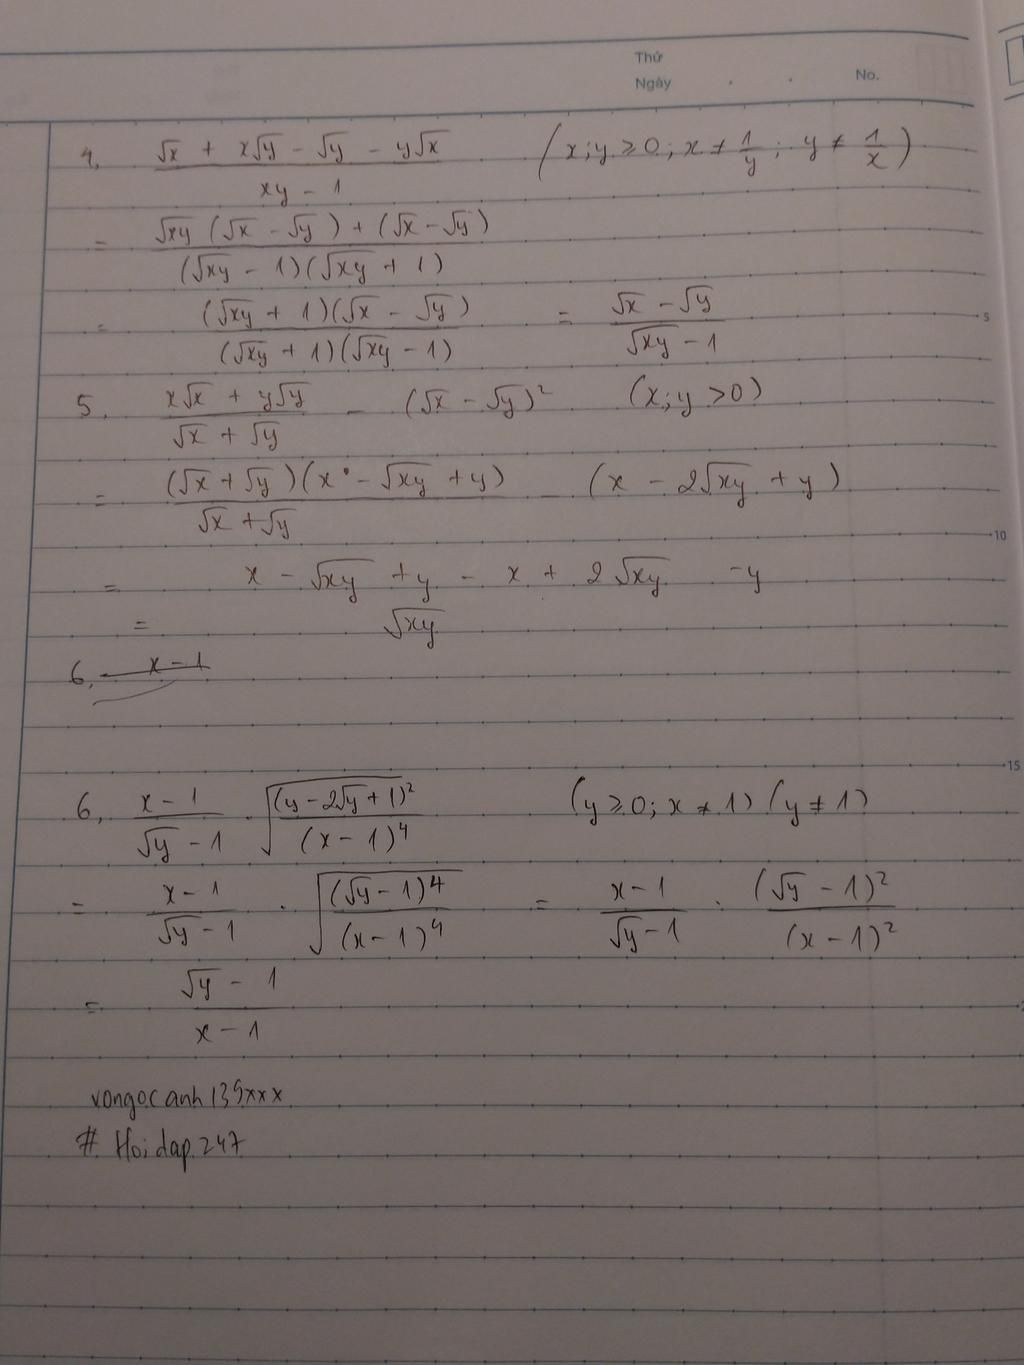 Thứ
Ngày . . No.
4, (√x + x√y - √y - y√x)/(xy - 1) (x;y ≥ 0; x ≠ 1/y; y ≠ 1/x)
= (√xy (√x - √y) + (√x - √y))/((√xy - 1)(√xy + 1))
= ((√xy + 1)(√x - √y))/((√xy + 1)(√xy - 1)) = (√x - √y)/(√xy - 1)
5
5, (x√x + y√y)/(√x + √y) - (√x - √y)² (x;y > 0)
= ((√x + √y)(x - √xy + y))/(√x + √y) - (x - 2√xy + y)
10
= x - √xy + y - x + 2√xy - y
= √xy
6, x - 1
15
6, (x - 1)/(√y - 1) . √((y - 2√y + 1)²/(x - 1)⁴) (y ≥ 0; x ≠ 1) (y ≠ 1)
= (x - 1)/(√y - 1) . √((√y - 1)⁴/(x - 1)⁴) = (x - 1)/(√y - 1) . (√y - 1)²/(x - 1)²
= (√y - 1)/(x - 1)
vongocanh139xxx
# Hoidap247